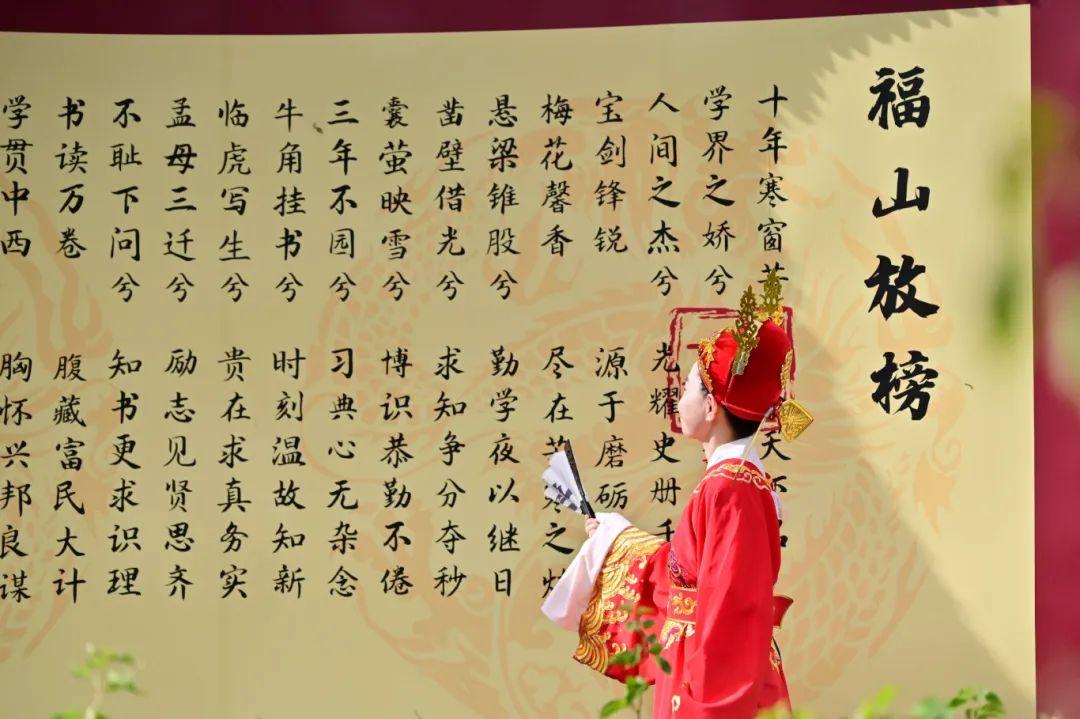 福山放榜
十年寒窗 天
学界之娇兮
人间之杰兮 光耀史册
宝剑锋锐 源于磨砺
梅花馨香 尽在 寒之
悬梁锥股兮 勤学夜以继日
凿壁借光兮 求知争分夺秒
囊萤映雪兮 博识恭勤不倦
三年不园兮 习典心无杂念
牛角挂书兮 时刻温故知新
临虎写生兮 贵在求真务实
孟母三迁兮 励志见贤思齐
不耻下问兮 知书更求识理
书读万卷 腹藏富民大计
学贯中西 胸怀兴邦良谋